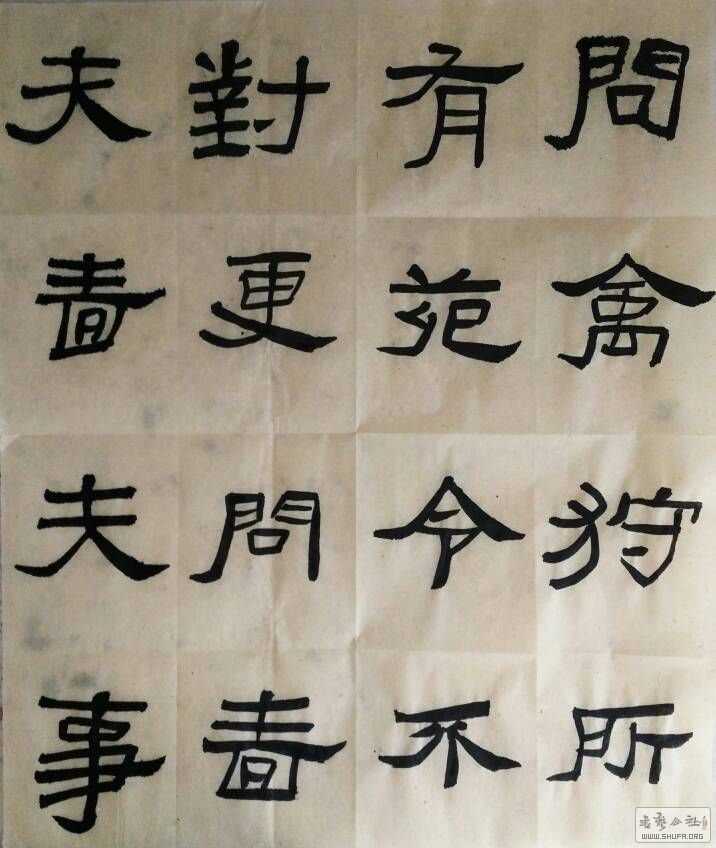 問禽狩所
有苑令不
對更問嗇
夫嗇夫事
书艺公社
WWW.SHUFA.ORG